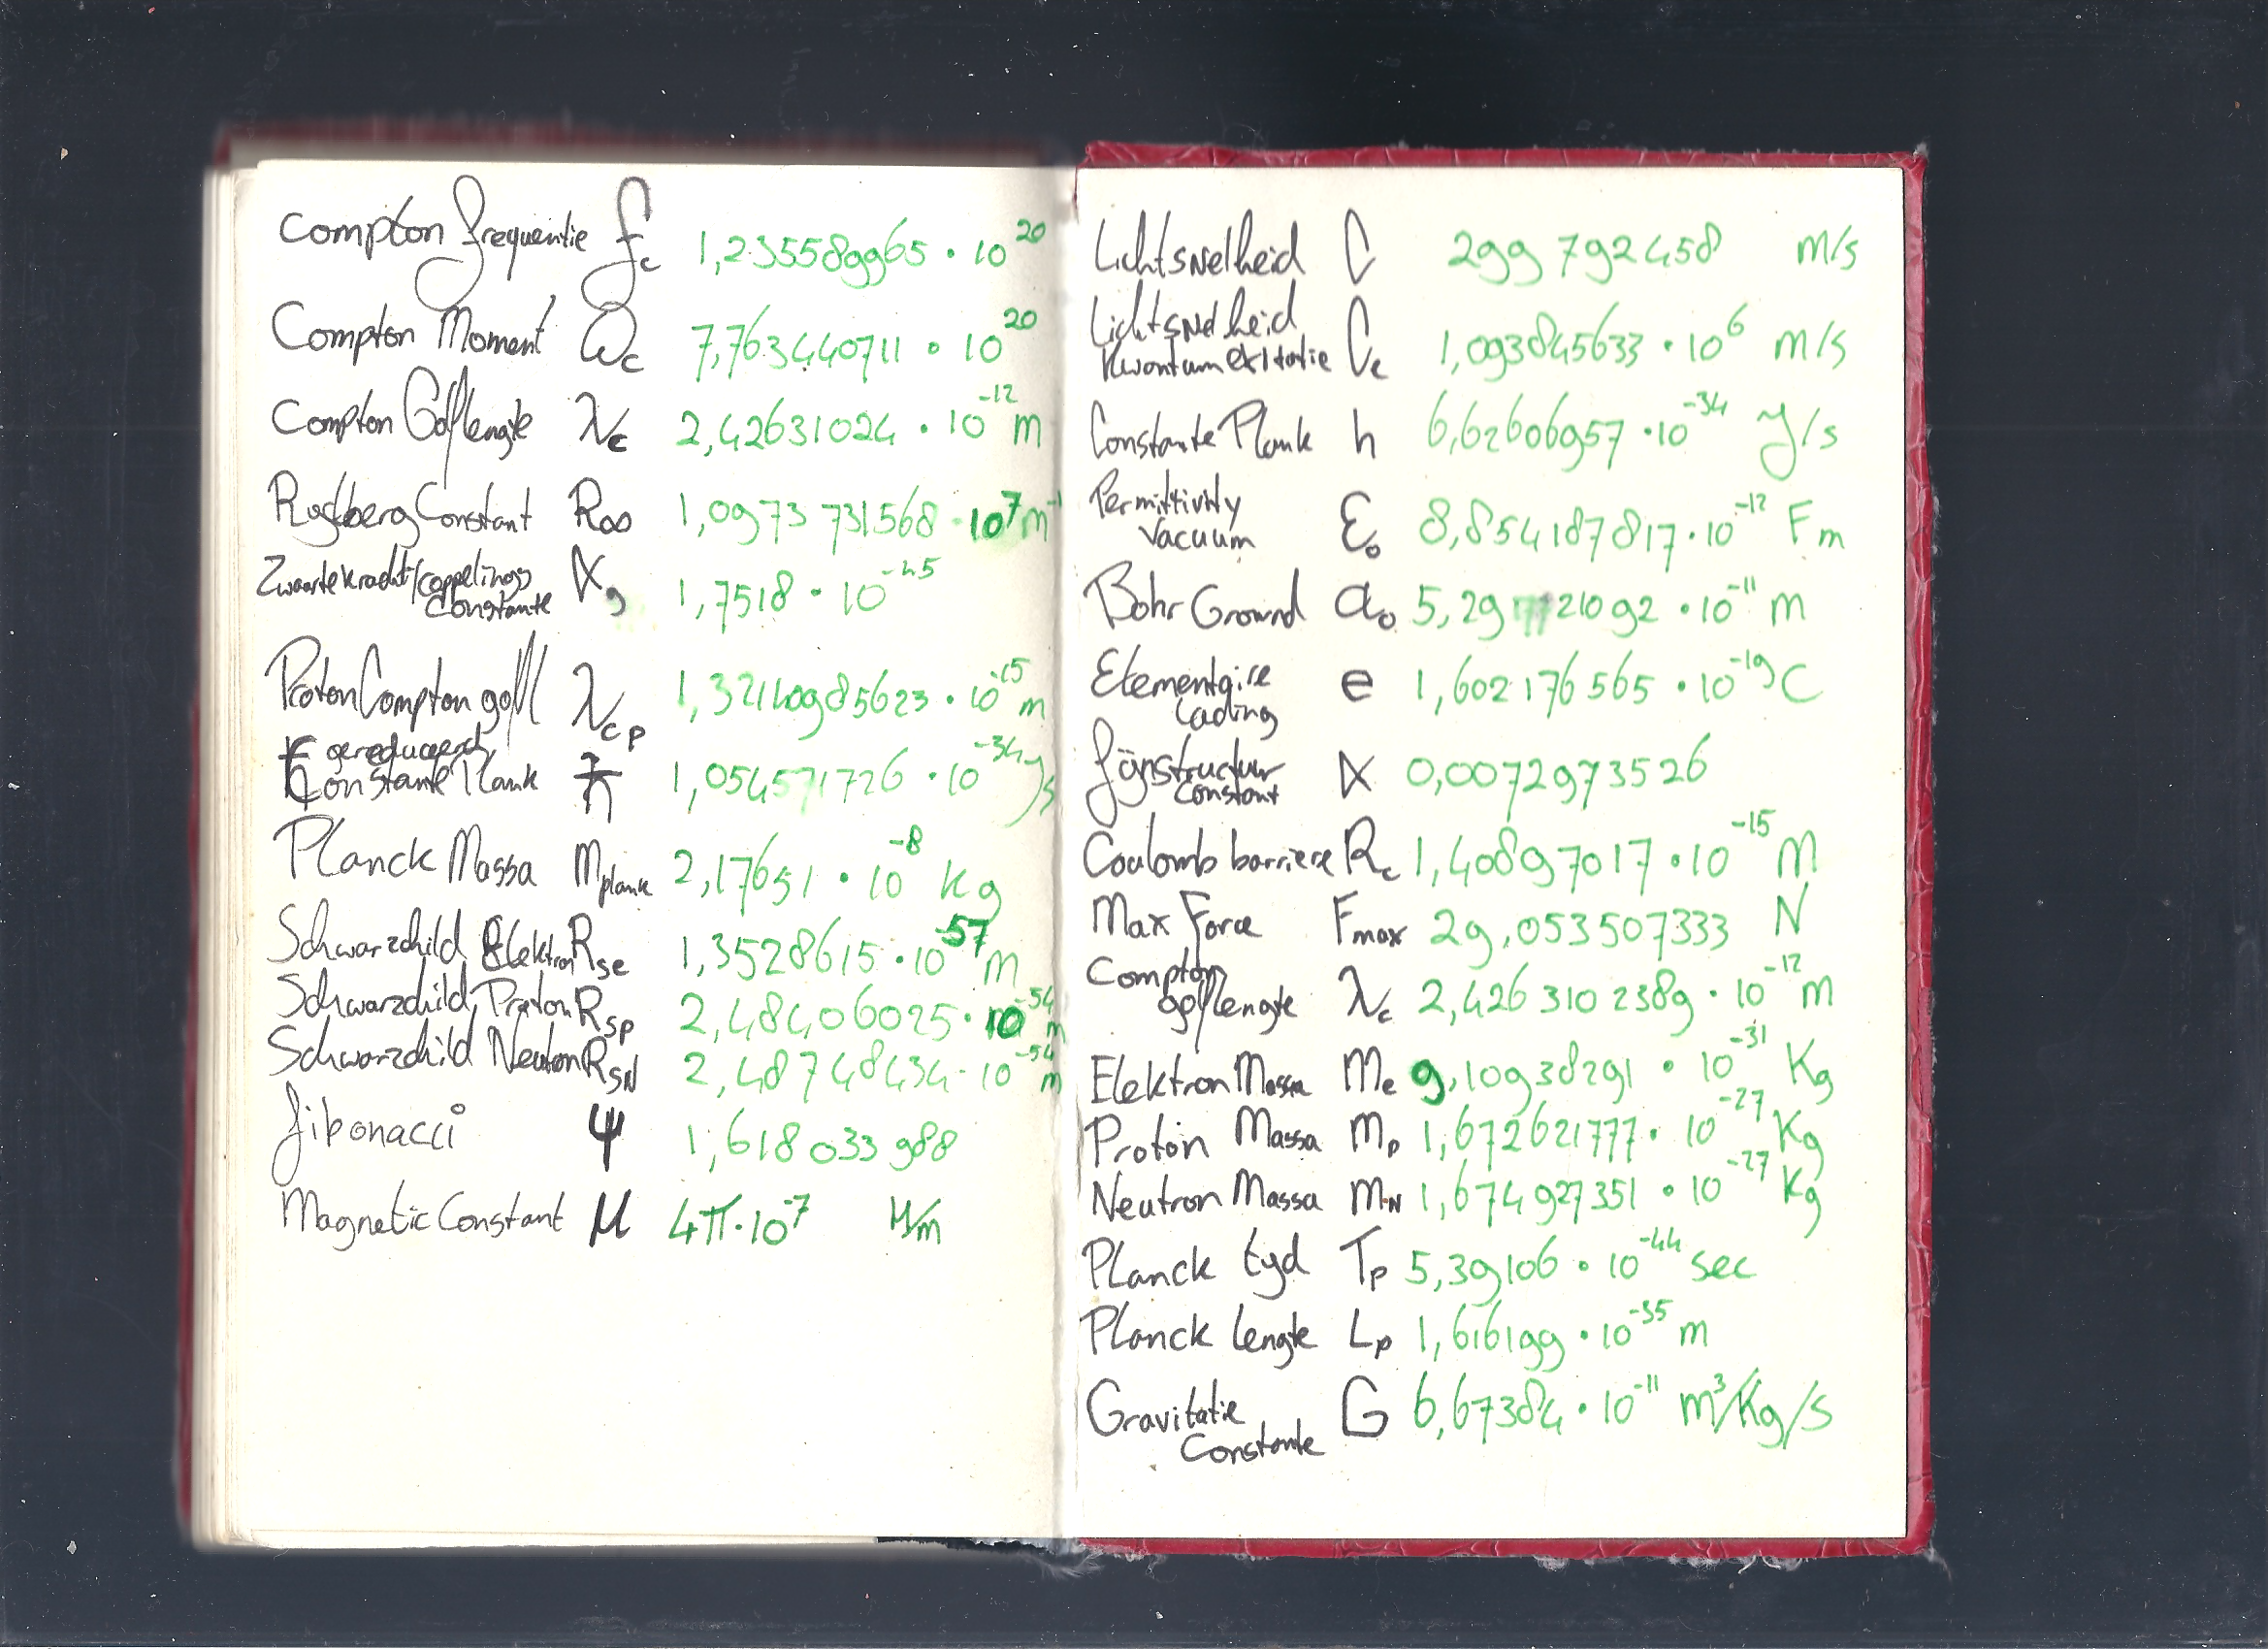 Compton frequentie fc 1,235589965 · 10^20
Compton Moment ωc 7,763440711 · 10^20
Compton Golflengte λc 2,42631024 · 10^-12 m
Rydberg Constant R∞ 1,0973 731568 · 10^7 m^-1
Zwaartekracht/coppelings
Constante αg 1,7518 · 10^-45
Proton Compton golf λcp 1,32140985623 · 10^-15 m
gereduceerd
Constante Plank ħ 1,054571726 · 10^-34 J/s
Planck Massa Mplank 2,17651 · 10^-8 Kg
Schwarzchild Elektron Rse 1,3528615 · 10^-57 m
Schwarzchild Proton Rsp 2,48406025 · 10^-54 m
Schwarzchild Neutron RsN 2,48748434 · 10^-54 m
fibonacci ψ 1,618 033 988
Magnetic Constant μ 4π·10^-7 H/m
Lichtsnelheid C 299 792 458 m/s
Lichtsnelheid
Kwantum exitatie Ce 1,093845633 · 10^6 m/s
Constante Plank h 6,62606957 · 10^-34 J/s
Permittivity
Vacuum ε0 8,854187817 · 10^-12 Fm
Bohr Grownd a0 5,2917721092 · 10^-11 m
Elementaire
Lading e 1,602 176 565 · 10^-19 C
fijnstructuur
constant α 0,0072973526
Coulomb barriere Rc 1,40897017 · 10^-15 M
Max Force Fmax 29,053507333 N
Compton
golflengte λc 2,426 310 2389 · 10^-12 m
Elektron Massa Me 9,10938291 · 10^-31 Kg
Proton Massa Mp 1,672621777 · 10^-27 Kg
Neutron Massa MN 1,674927351 · 10^-27 Kg
Planck tyd Tp 5,39106 · 10^-44 sec
Planck lengte Lp 1,616199 · 10^-35 m
Gravitatie
Constante G 6,67384 · 10^-11 m³/Kg/s